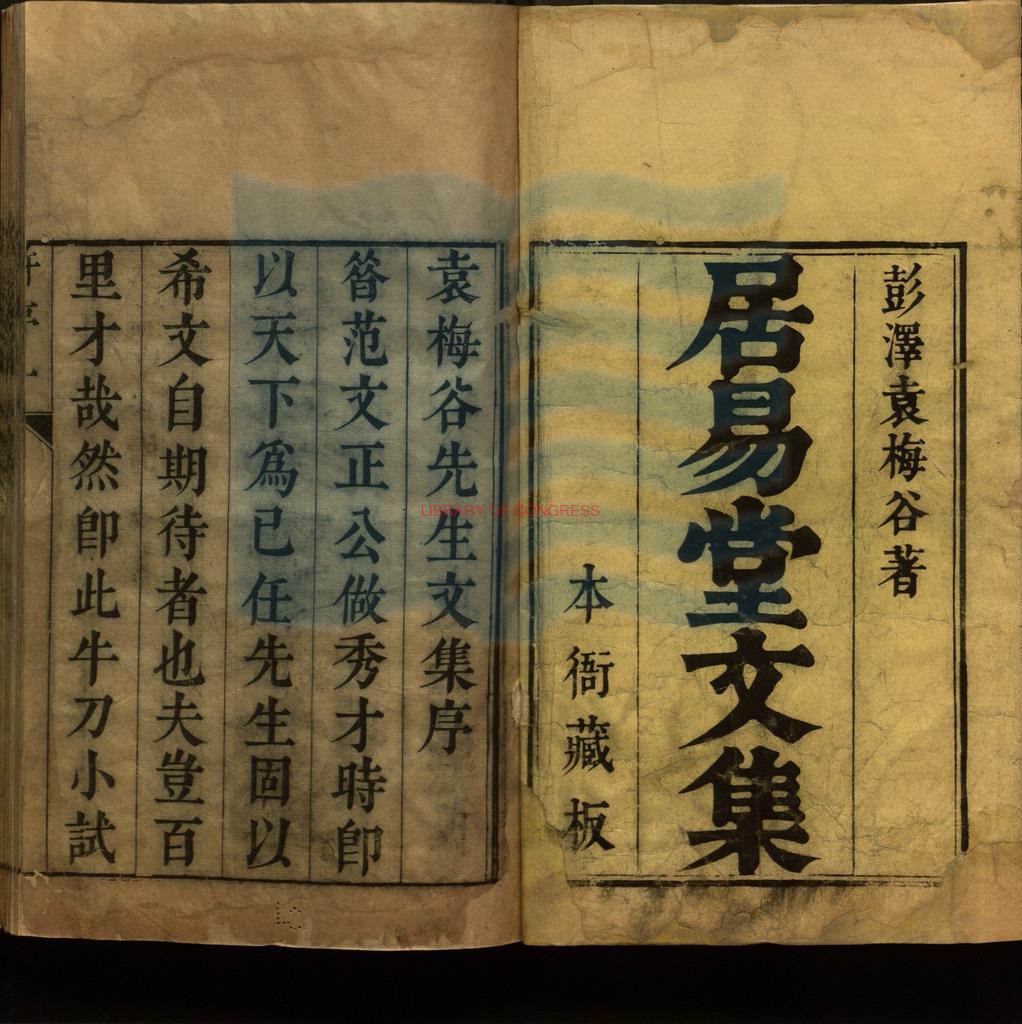 彭澤袁梅谷著
居易堂文集
本衙藏板
袁梅谷先生文集序
昝范文正公做秀才時卽
以天下為已任先生固以
希文自期待者也夫豈百
里才哉然卽此牛刀小試
LIBRARY OF CONGRESS